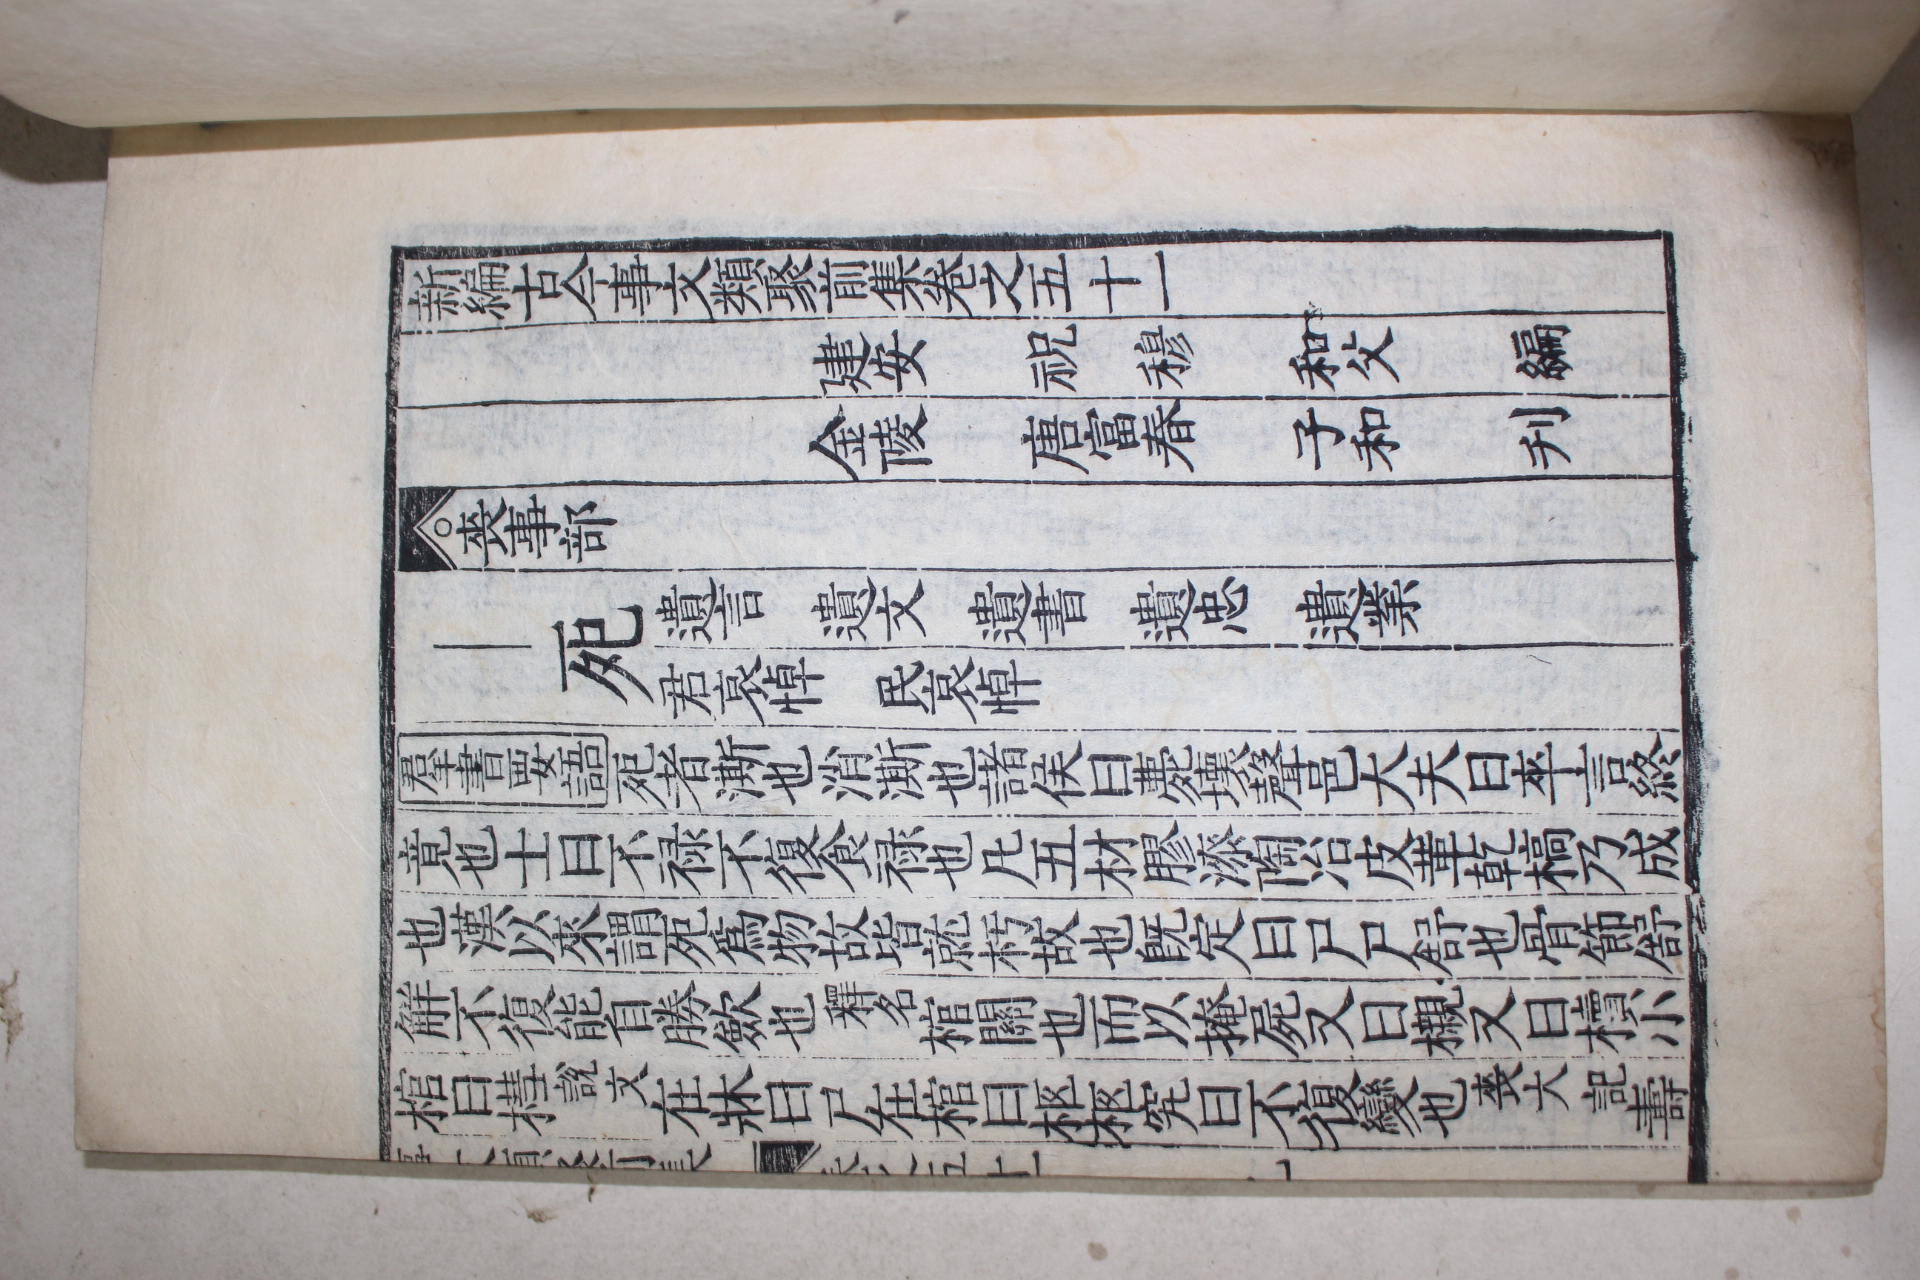 新編古今事文類聚前集卷之五十一
建安 祝 穆 和父 編
金陵 唐富春 子和 刋
○喪事部
死
遺言 遺文 遺書 遺忠 遺業
君哀悼 民哀悼
羣書要語 死者澌也消澌也諸侯曰薨壞聲邑大夫曰卒言終
竟也士曰不禄不復食禄也凡五材膠漆陶冶皮革乾槁乃成
也漢以來謂死爲物故皆就朽故也旣定曰尸尸舒也骨節舒
解不復能自勝斂也釋名棺關也而以掩屍又曰櫬又曰櫝小
棺曰槥說文在牀曰尸在棺曰柩柩究曰不復變也喪大記壽